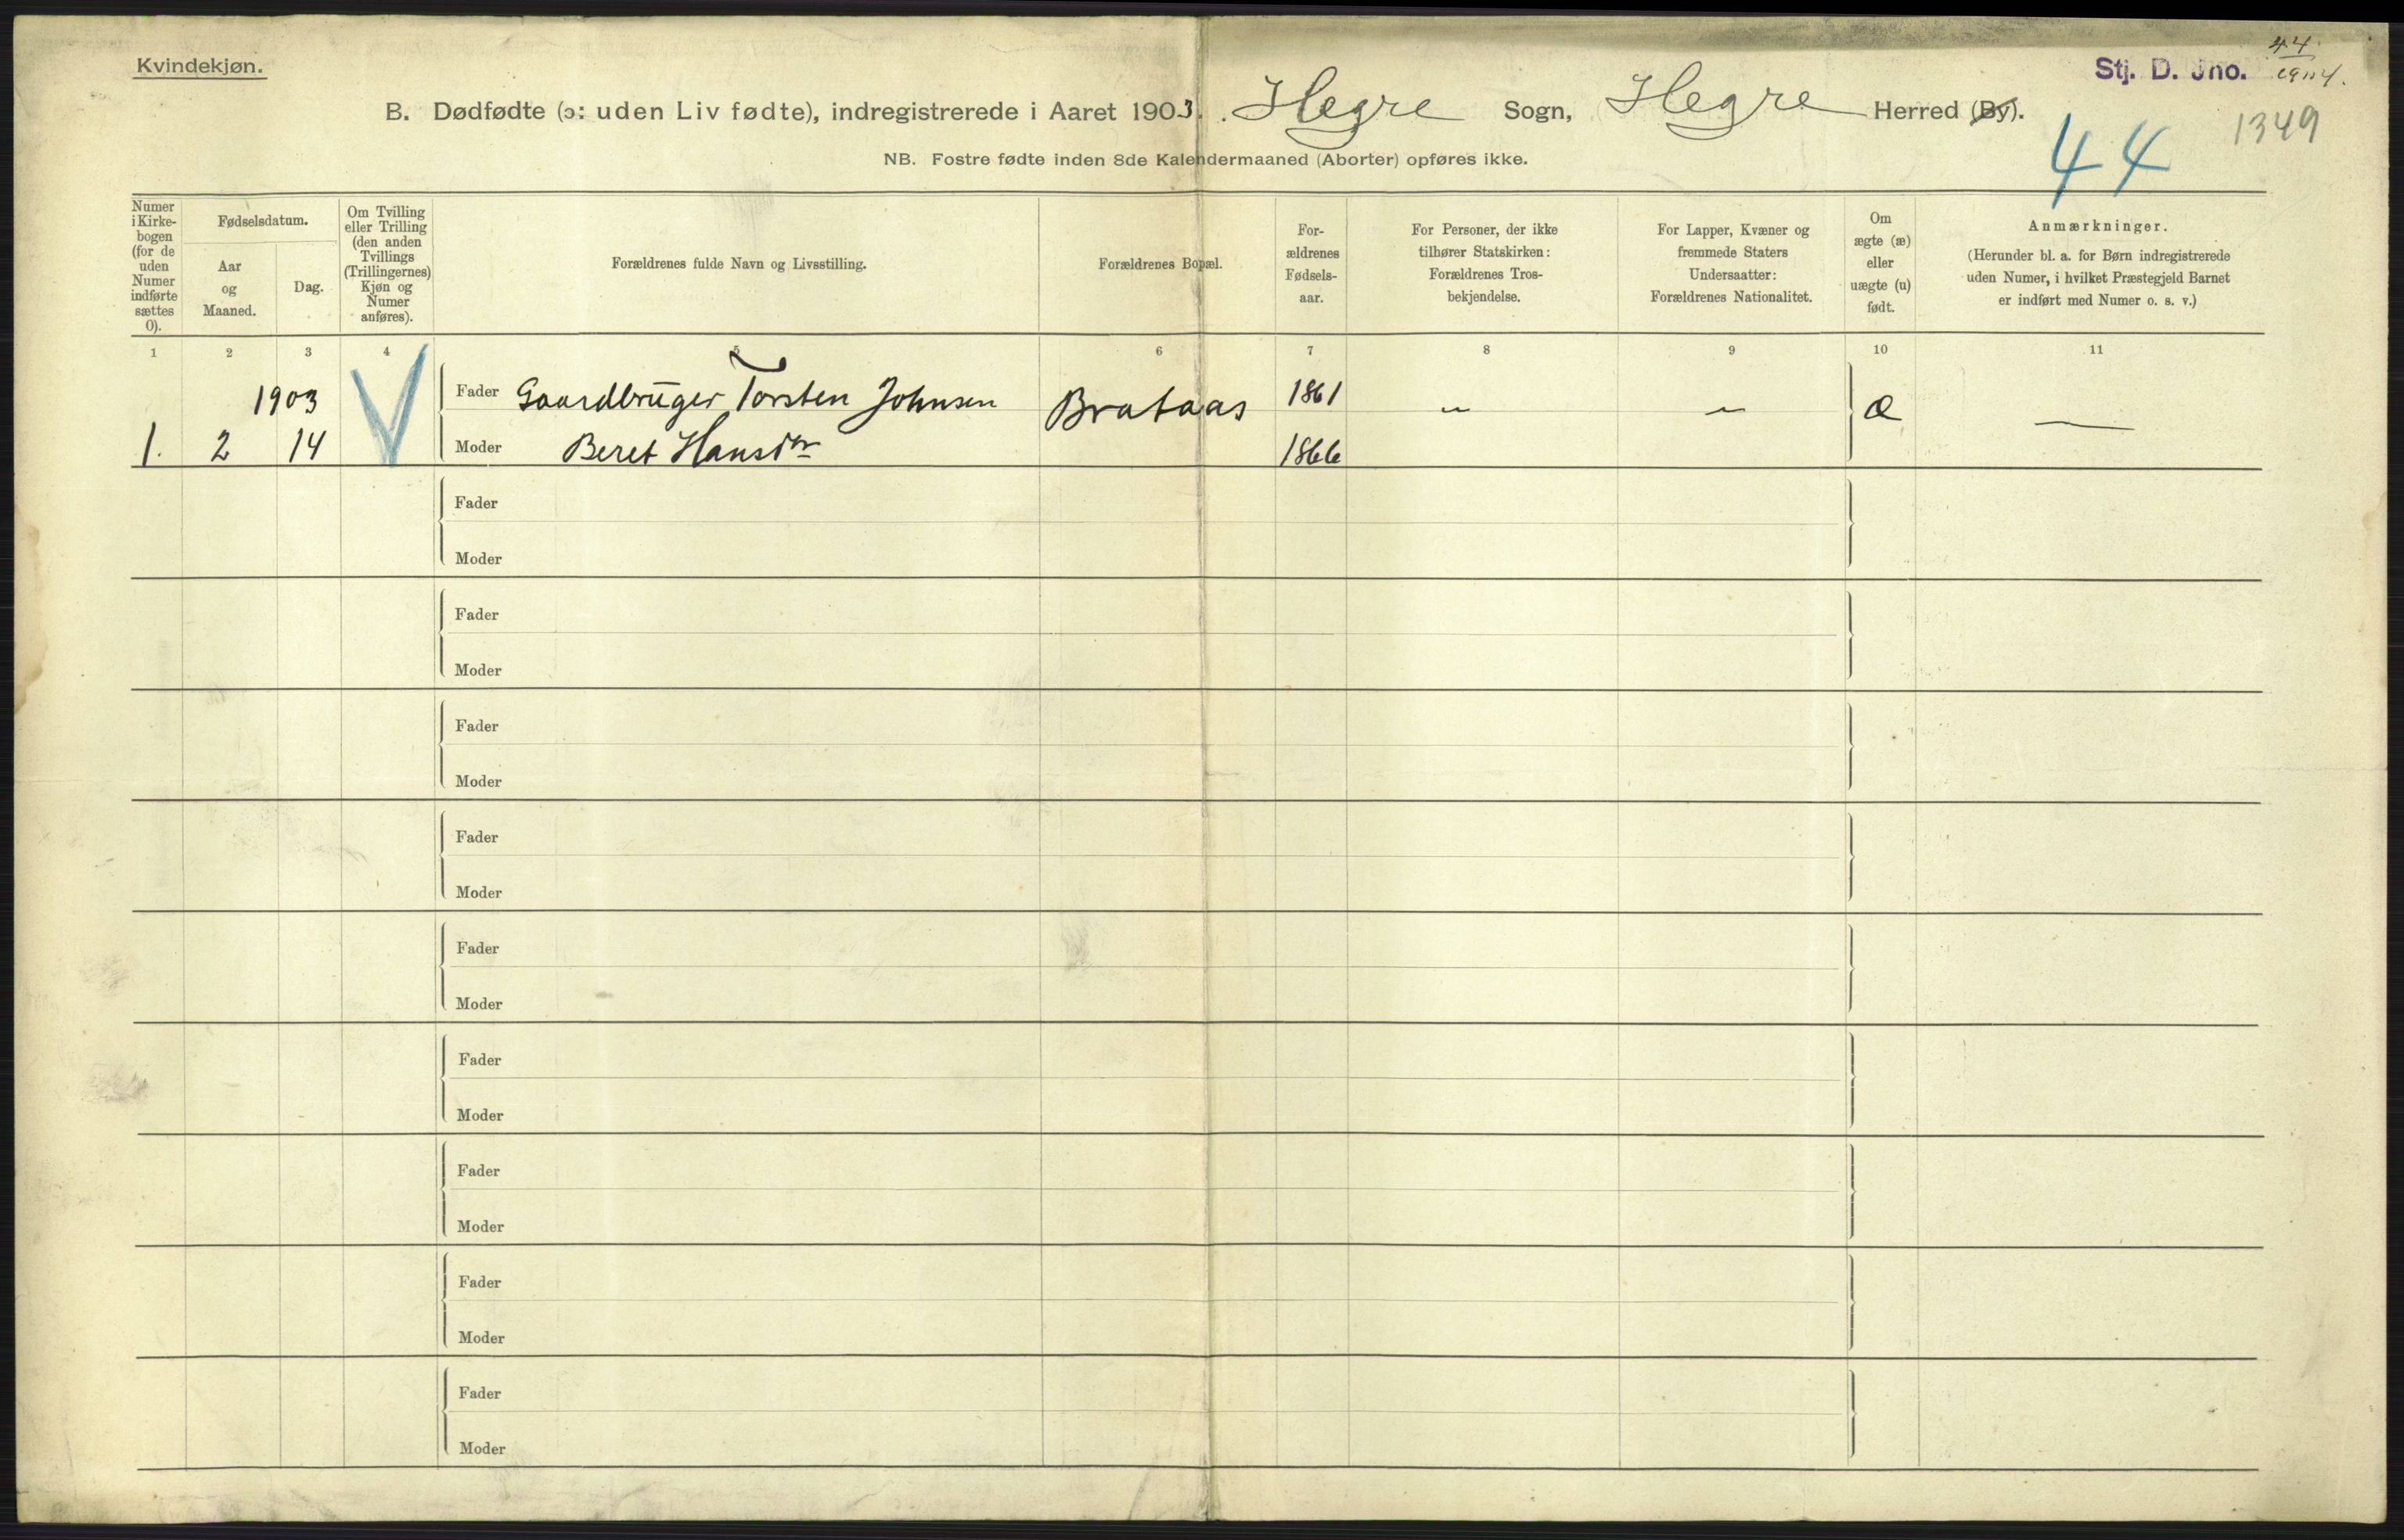 Kvindekjøn.
Stj. D. Jno. 44/1904.
B. Dødfødte (ɔ: uden Liv fødte), indregistrerede i Aaret 1903. Hegre Sogn, Hegre Herred (By).
1349
44
NB. Fostre fødte inden 8de Kalendermaaned (Aborter) opføres ikke.
Numer
i Kirke-
bogen
(for de
uden
Numer
indførte
sættes
0).
Fødselsdatum.
Aar
og
Maaned.
Dag.
Om Tvilling
eller Trilling
(den anden
Tvillings
(Trillingernes)
Kjøn og
Numer
anføres).
Forældrenes fulde Navn og Livsstilling.
Forældrenes Bopæl.
For-
ældrenes
Fødsels-
aar.
For Personer, der ikke
tilhører Statskirken:
Forældrenes Tros-
bekjendelse.
For Lapper, Kvæner og
fremmede Staters
Undersaatter:
Forældrenes Nationalitet.
Om
ægte (æ)
eller
uægte (u)
født.
Anmærkninger.
(Herunder bl. a. for Børn indregistrerede
uden Numer, i hvilket Præstegjeld Barnet
er indført med Numer o. s. v.)
1 2 3 4 5 6 7 8 9 10 11
1903 Fader Gaardbruger Torsten Johnsen Brataas 1861 " " æ —
1. 2 14 Moder Beret Hansdtr 1866
Fader
Moder
Fader
Moder
Fader
Moder
Fader
Moder
Fader
Moder
Fader
Moder
Fader
Moder
Fader
Moder
Fader
Moder